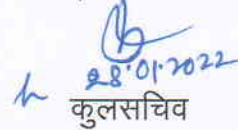 28.01.2022
कुलसचिव